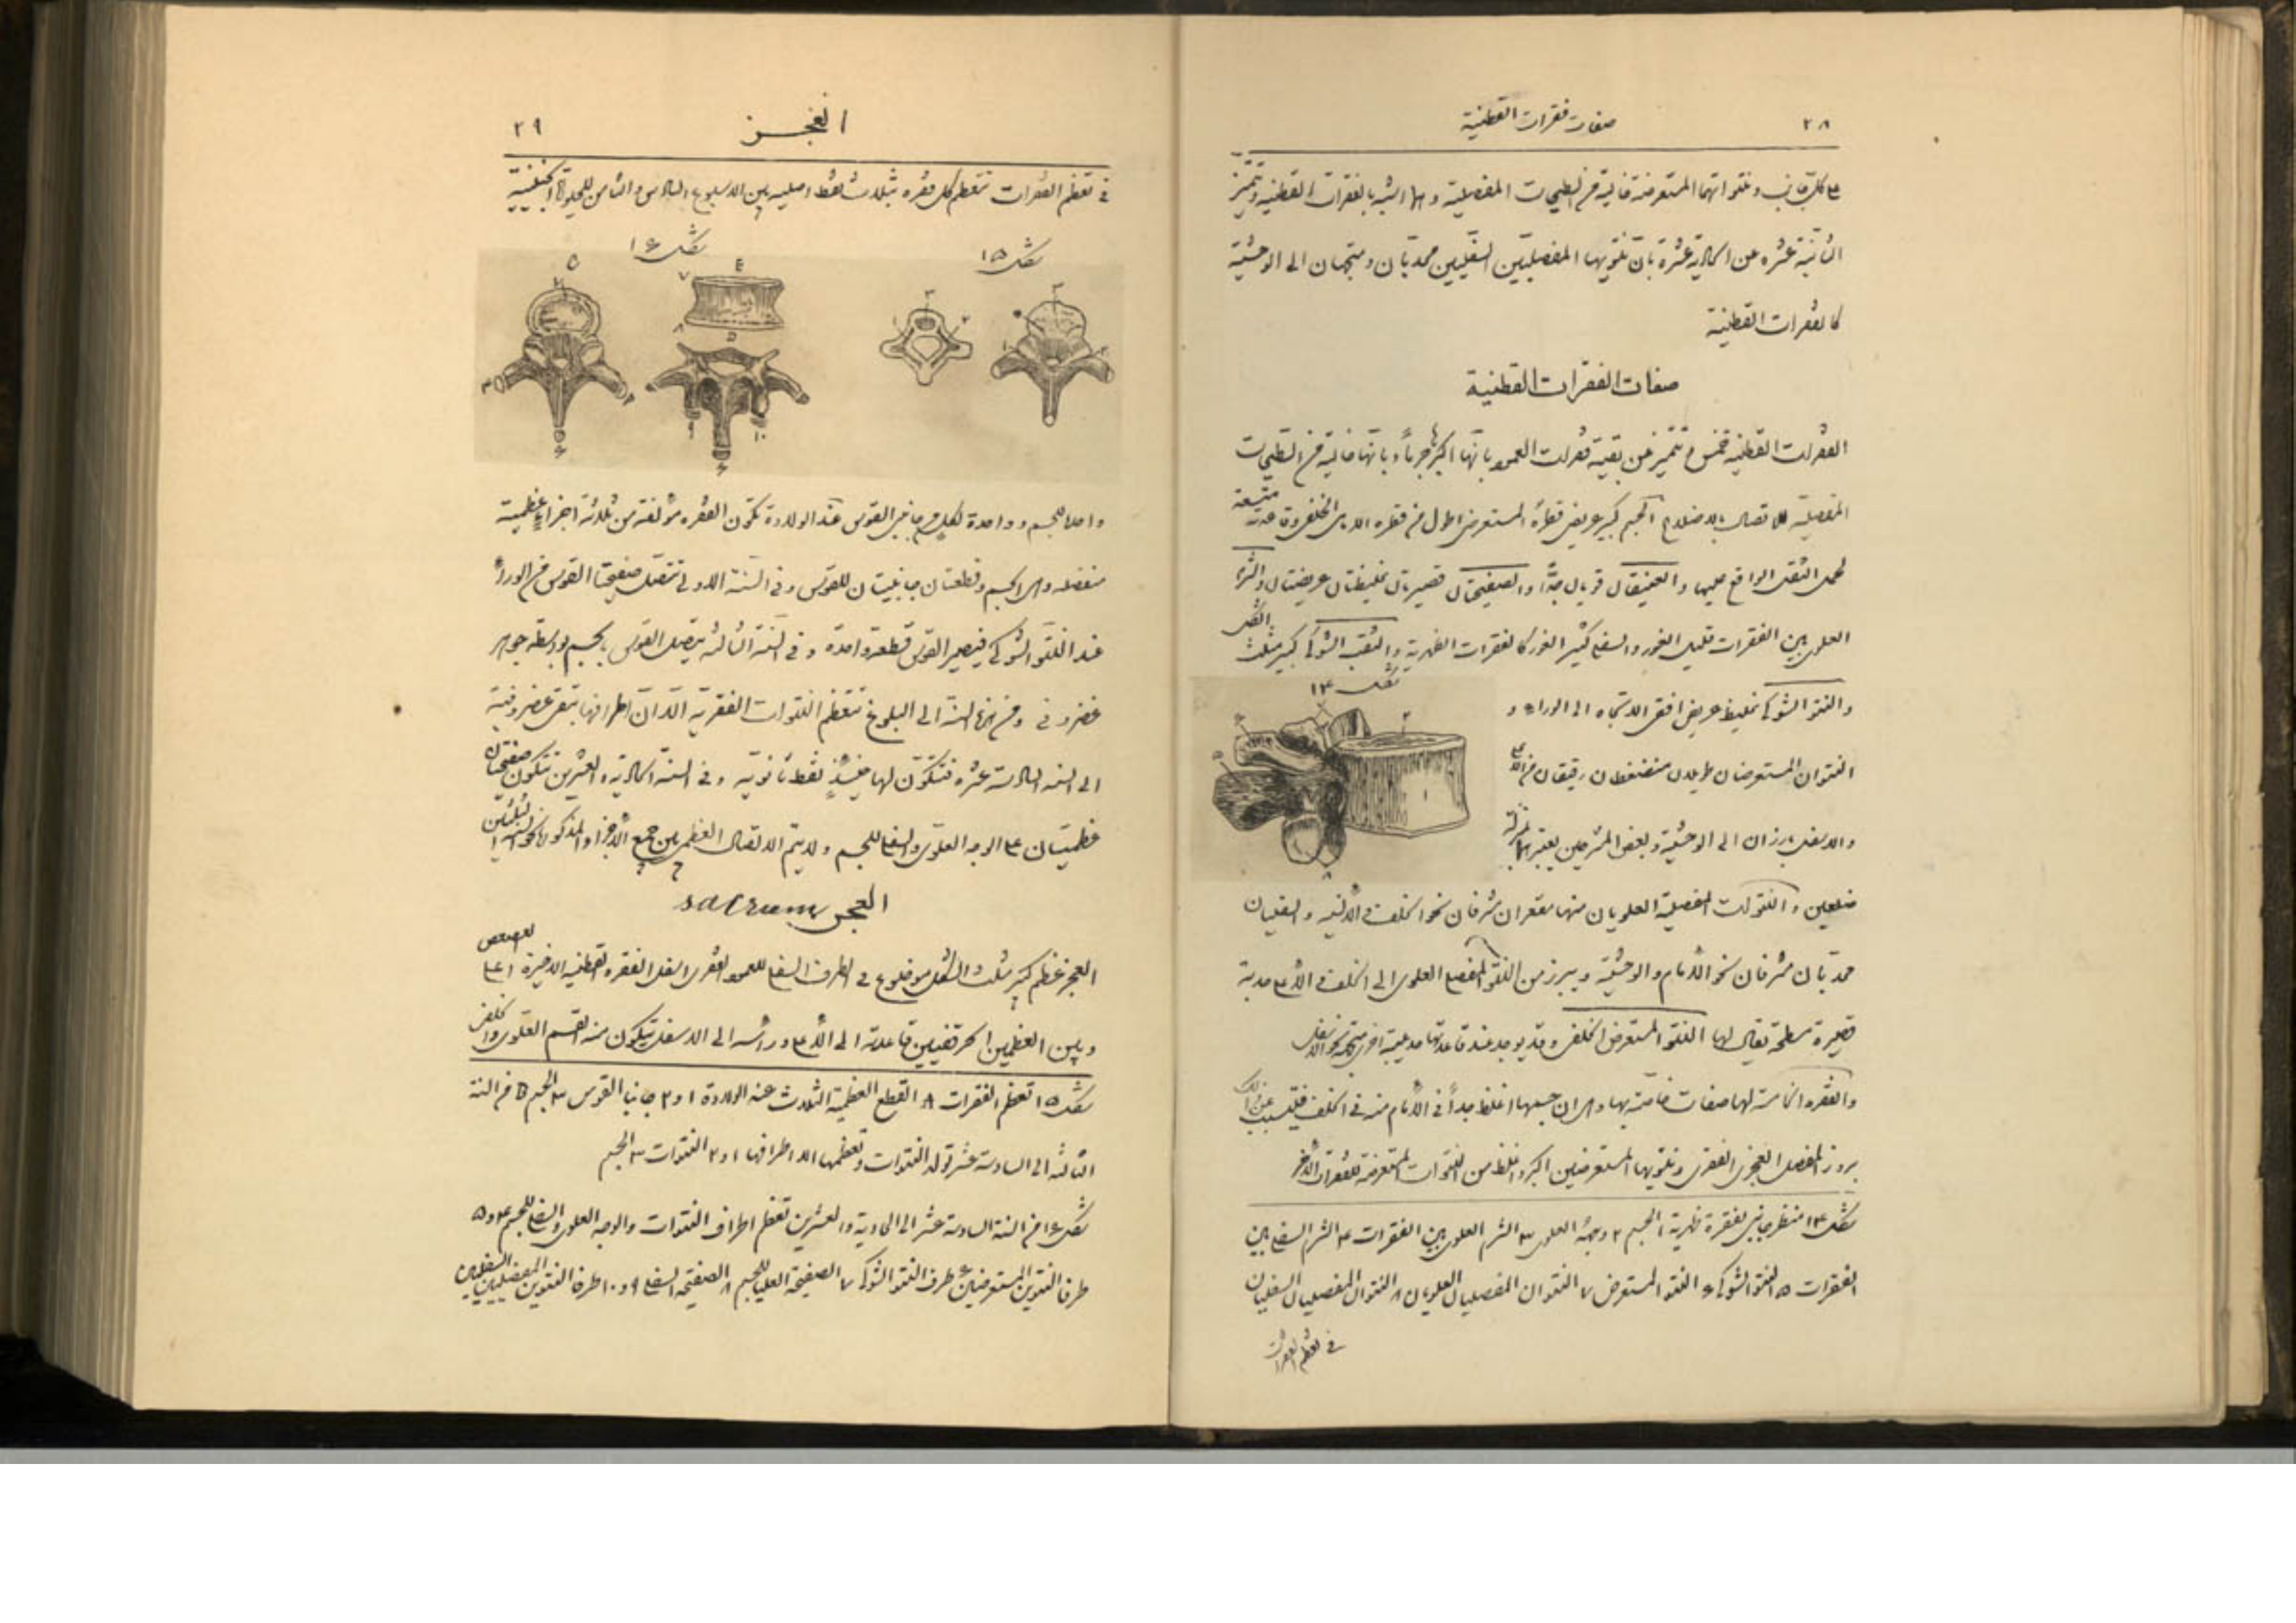 ٢٨ صفات فقرات القطنية
على كل جانب ونتواتهما المستعرضة خالية من السطيحات المفصلية وهما اشبه بالفقرات القطنية وتتميز
الثانية عشره عن الحادية عشرة بان نتويها المفصليين السفليين محدبان ومتجهان الى الوحشية
كالفقرات القطنية
صفات الفقرات القطنية
الفقرات القطنية خمس وتتميز عن بقية فقرات العمود بانها اكبرها جرماً وبانها خالية من السطيحات
المفصلية للاتصال بالاضلاع الجسم كبير عريض قطره المستعرض اطول من قطره الامامى الخلفى وقاعدته متسعة
لحمل الثقل الواقع عليها والعنيقتان قويتان جدًّا والصفيحتان قصيرتان غليظتان عريضتان والشرم
العلوى بين الفقرات قليل الغور والسفلى كثير الغور كالفقرات الظهرية والثقب الشوكى كبير مثلث الشكل
شكل ١٤
والنتو الشوكى غليظ عريض افقى الاتجاه الى الوراء و
النتوان المستعرضان طويلان منضغطان رقيقان من الاعلى
والاسفل بارزان الى الوحشية وبعض المشرحين يعتبرهما بمنزلة
ضلعين والنتوات المفصلية العلويان منها مقعران مشرفان نحو الخلف والانسية والسفليان
محدبان مشرفان نحو الامام والوحشية ويبرز من النتو المفصلى العلوى الى الخلف والاعلى حدبة
قصيرة سطحة يقال لها النتو المستعرض الخلفى وقد يوجد عند قاعدتها حديبة اخرى متجهة نحو الاسفل
والفقره الخامسة لها صفات خاصة بها وهى ان جسمها اغلظ جداً فى الامام منه فى الخلف فيتسبب عن ذلك
بروز المفصل العجزى الفقرى ونتويها المستعرضين اكبر واغلظ من النتوات المستعرضة للفقرات الاخر
شكل ١٤ منظر جانبى لفقرة ظهرية ١ الجسم ٢ وجهه العلوى ٣ الشرم العلوى بين الفقرات ٤ الشرم السفلى بين
الفقرات ٥ النتو الشوكى ٦ النتو المستعرض ٧ النتوان المفصليان العلويان ٨ النتوان المفصليان السفليان
فى تعظم الفقرات
العجز ٢٩
فى تعظم الفقرات تتعظم كل فقره بثلاث نقط اصليه بين الاسبوع السادس والثامن للحيوة الجنينية
شكل ١٥ شكل ١٦
واحدة للجسم وواحدة لكل من جانبى القوس عند الولادة تكون الفقره مؤلفة من ثلاثة اجزاء عظمية
منفصله وهى الجسم وقطعتان جانبيتان للقوس وفى السنة الاولى تتصل صفيحتا القوس من الوراء
عند النتو الشوكى فيصير القوس قطعة واحدة وفى السنة الثالثه يتصل القوس بالجسم بواسطة جوهر
غضروفى ومن هذه السنة الى البلوغ تتعظم النتوات الفقرية الا ان اطرافها تبقى غضروفية
الى السنه السادسة عشره فتتكون لها حينئذٍ نقط ثانويه وفى السنة الحادية والعشرين تتكون صفيحتان
عظميتان على الوجه العلوى والسفلى للجسم ولا يتم الاتصال العظمى بين جميع الاجزاء المذكورة نحو سن الثلثين
العجز sacrum
العجز عظم كبير مثلث الشكل موضوع فى الطرف السفلى للعمود الفقرى اسفل الفقره القطنيه الاخيرة اعلى العصعص
وبين العظمين الحرقفيين قاعدته الى الاعلى وراسه الى الاسفل يتكون منه القسم العلوى والخلفى
شكل ١٥ تعظم الفقرات A القطع العظمية الثلاث عند الولادة ١ و٢ جانبا القوس ٣ الجسم B من السنة
الثالثه الى السادسة عشر تولد النتوات وتعظمها الا اطرافها ١ و٢ النتوات ٣ الجسم
شكل ١٦ من السنة السادسة عشر الى الحادية والعشرين تعظم اطراف النتوات والوجه العلوى والسفلى للجسم ٤ و٥
طرفا النتوين المستعرضين ٦ طرف النتو الشوكى ٧ الصفيحة العليا للجسم ٨ الصفيحة السفلى ٩ و١٠ طرفا النتوين المفصليين السفليين